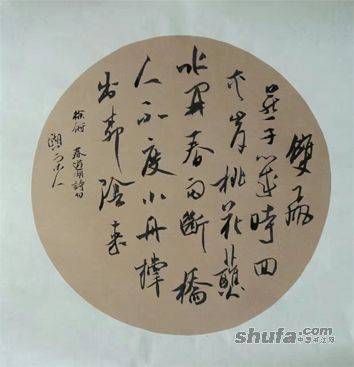 雙飛
燕子幾時回
夾岸桃花蘸
水開春雨斷橋
人不度小舟撐
出柳陰來
徐俯 春遊湖詩句
shufa.com
中国书法网